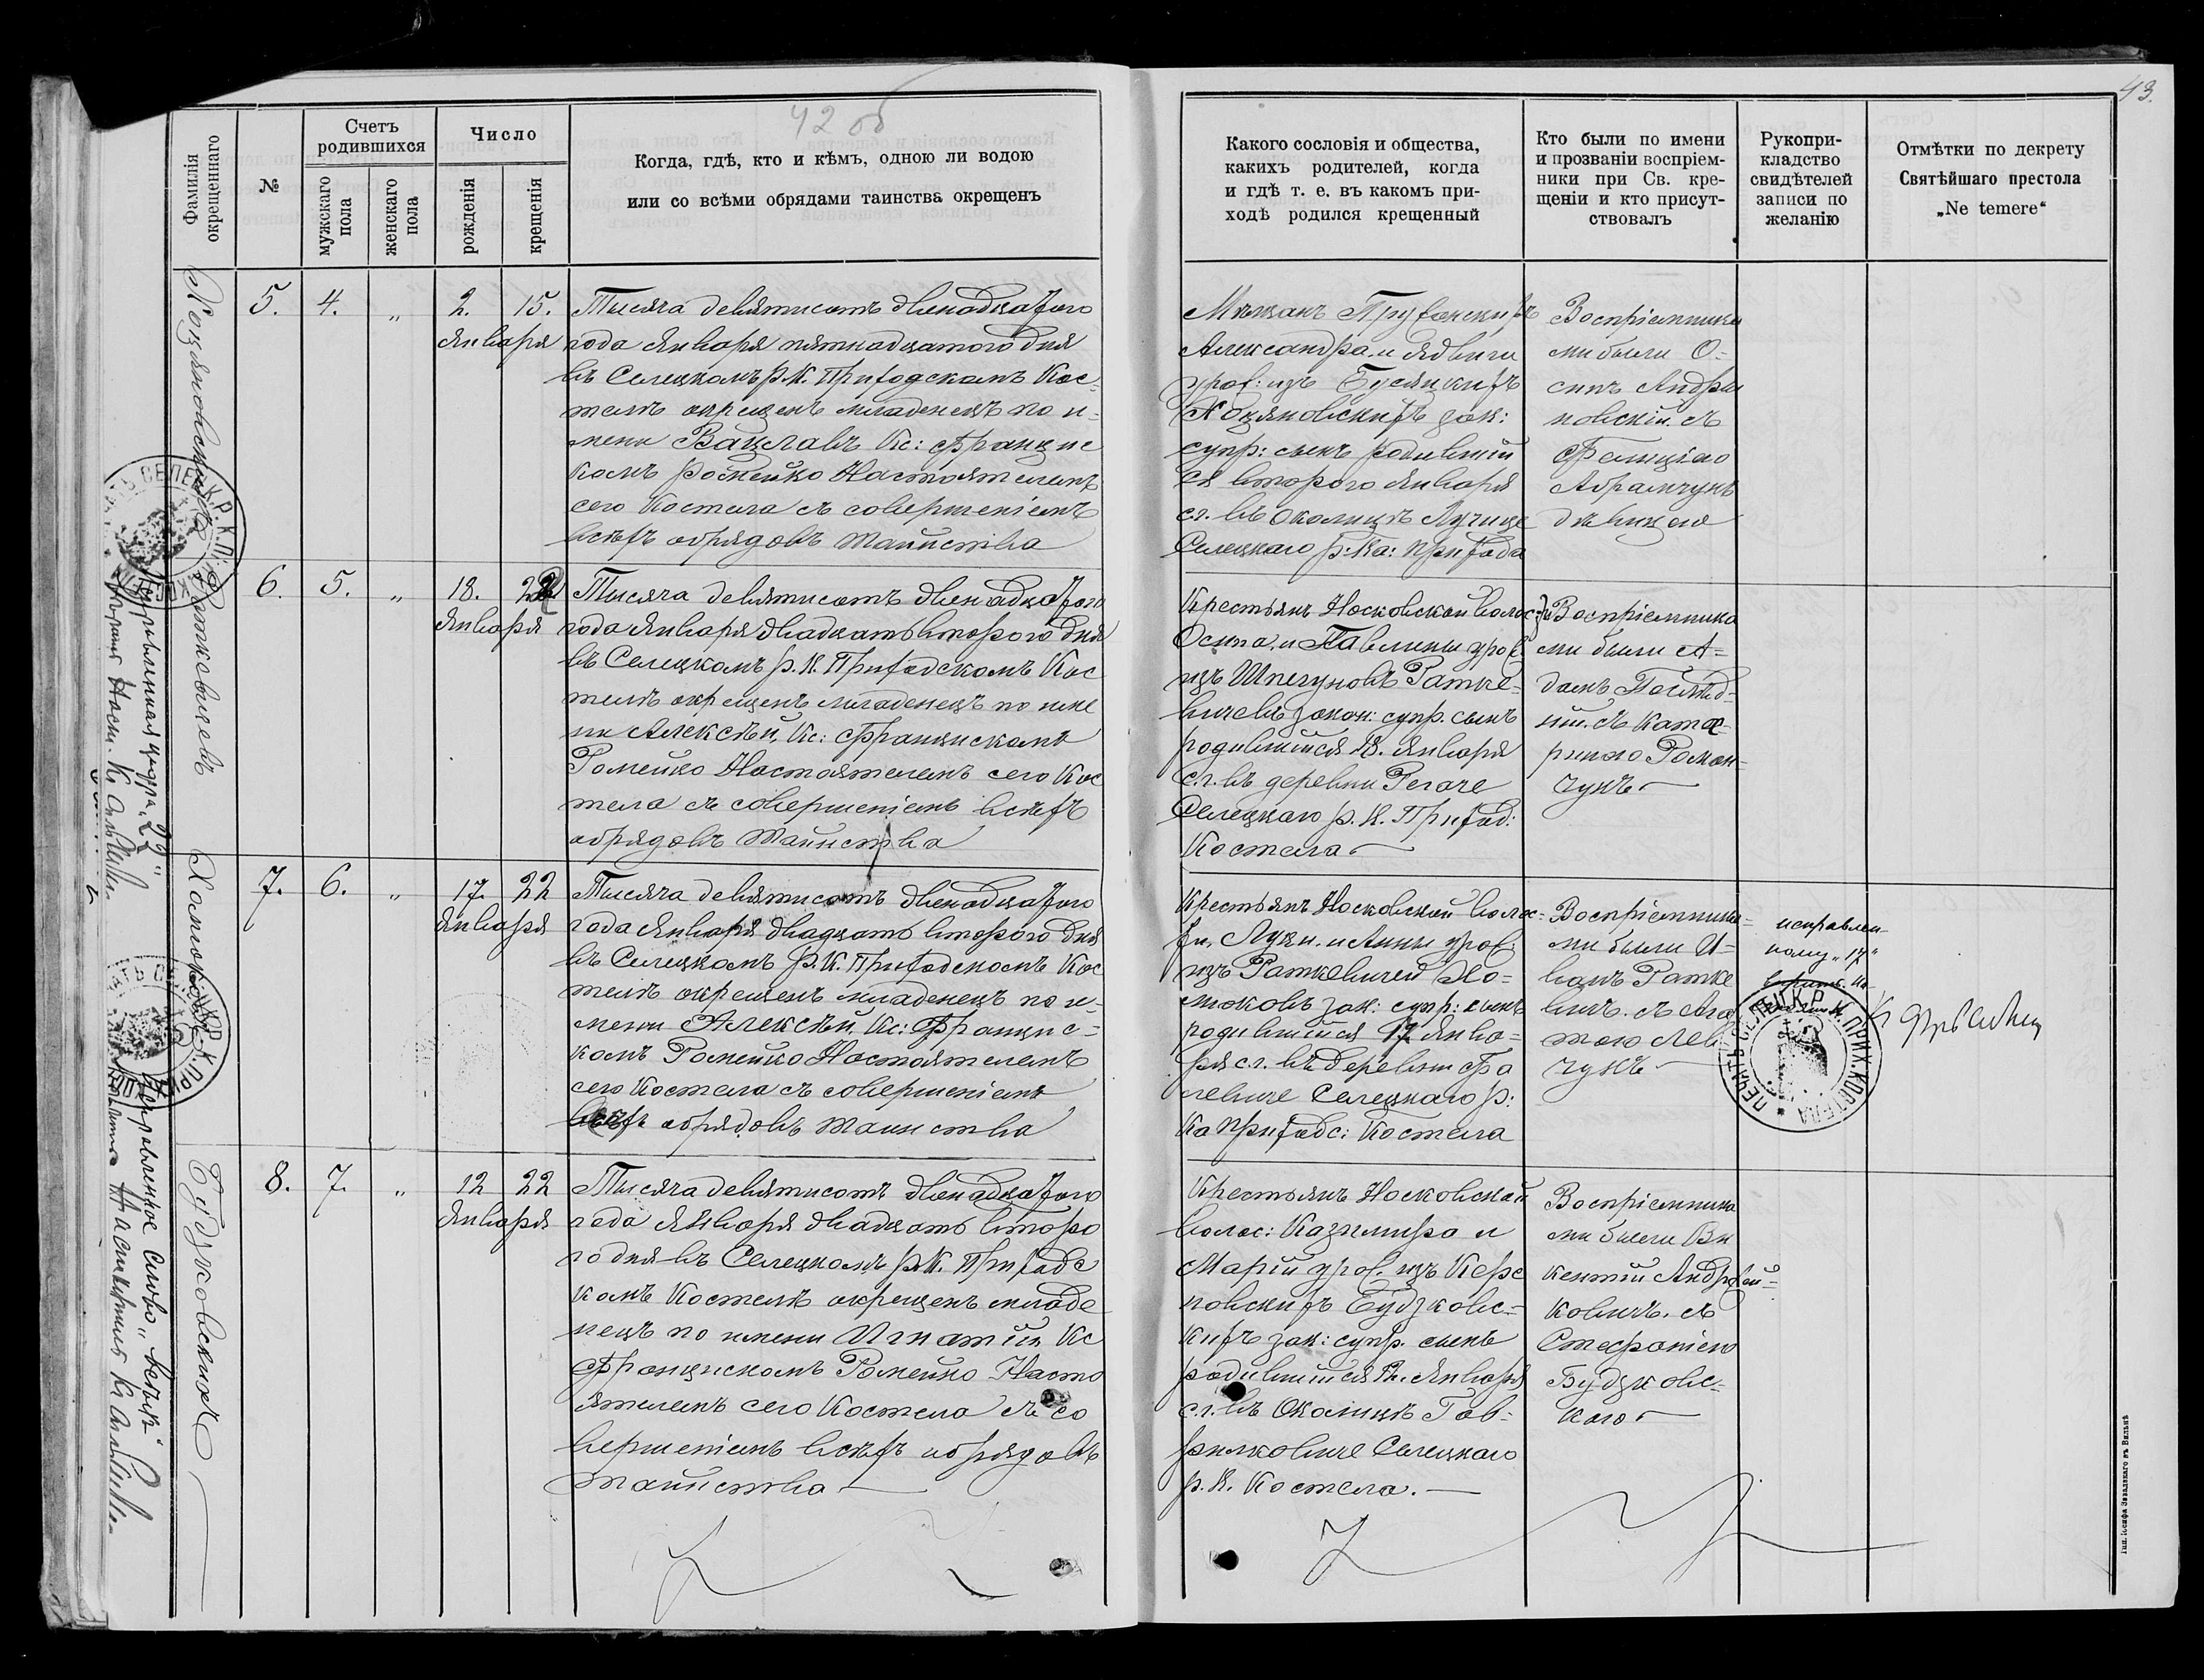 42 об
43.
Фамилія окрещеннаго
№
Счетъ родившихся
мужскаго пола
женскаго пола
Число
рожденія
крещенія
Когда, гдѣ, кто и кѣмъ, одною ли водою
или со всѣми обрядами таинства окрещенъ
Какого сословія и общества,
какихъ родителей, когда
и гдѣ т. е. въ какомъ при-
ходѣ родился крещенный
Кто были по имени
и прозваніи воспріем-
ники при Св. кре-
щеніи и кто присут-
ствовалъ
Рукопри-
кладство
свидѣтелей
записи по
желанію
Отмѣтки по декрету
Святѣйшаго престола
„Ne temere“
Коцяновскихъ
5. 4. „ 2. 15.
Января
Тысяча девятисотъ двенадцатого
года Января пятнадцатого дня
въ Селецкомъ р. К. Приходскомъ Кос-
телѣ окрещенъ младенецъ по и-
мени Вацлавъ Кс: Францис
комъ Ромейко Настоятелемъ
сего Костела съ совершеніемъ
всѣхъ обрядовъ таинства
Мѣщанъ Пружанскихъ
Александра и Ядвиги
урож: изъ
Коцяновскихъ зак:
супр: сынъ родившій
ся второго Января
с.г. въ околицѣ
Селецкаго р: Ка: прихода
Воспріемника
ми были О-
сипъ Андрж
новскій съ
Фелиціею
Абрамчукъ
дѣвицею
Раткевичевъ
6. 5. „ 18. 22
Января
Тысяча девятисотъ двенадцатого
года Января двадцать второго дня
въ Селецкомъ р. К. Приходскомъ Кос
телѣ окрещенъ младенецъ по име
ни Алексѣй, Кс: Францискомъ
Ромейко Настоятелемъ сего Кос
тела съ совершеніемъ всѣхъ
обрядовъ таинства
Крестьянъ Носковской волос:
Осипа и Павлины урож
изъ Шпегуновъ Ратке-
вичевъ закон: супр. сынъ
родившійся 18. Января
с.г. въ деревни Регаче
Селецкаго р. К. Приход:
Костела
Воспріемника
ми были А-
дамъ
съ Кате-
риною Роман-
чукъ
7. 6. „ 17. 22
Января
Тысяча девятисотъ двенадцатого
года Января двадцать второго дня
въ Селецкомъ р. К. Приходскомъ Кос
телѣ окрещенъ младенецъ по и-
мени Алексѣй, Кс: Францис-
комъ Ромейко Настоятелемъ
сего Костела съ совершеніемъ
всѣхъ обрядовъ таинства
Крестьянъ Носковской волос-
ти, Луки и Анны урож:
изъ Раткевичей
зак: супр: сынъ
родившійся 17 Янва-
ря с.г. въ деревни Фа
левиче Селецкаго р:
Ка приходс: Костела
Воспріемника-
ми были И-
ванъ Ратке
вичъ съ Ага
тою Лев
чукъ
исправлен-
ному „17“
верить
ПЕЧАТЬ СЕЛЕЦК. Р. К. ПРИХ. КОСТЕЛА
Будзковскихъ
8. 7. „ 12 22
Января
Тысяча девятисотъ двенадцатого
года Января двадцать второ
го дня въ Селецкомъ р. К. Приходс
комъ Костелѣ окрещенъ младе
нецъ по имени Игнатій, Кс
Францискомъ Ромейко Насто
ятелемъ сего Костела съ со
вершеніемъ всѣхъ обрядовъ
таинства
Крестьянъ Носковской
волос: Казимира и
Маріи урож. изъ Керс
новскихъ Будзковс-
кихъ зак: супр. сынъ
родившійся 12. Января
с.г. въ Околицѣ Гав-
рилковиче Селецкаго
р. К. Костела.
Воспріемника
ми были Ви
кентій Андржей-
ковичъ съ
Стефаніею
Будзковс-
кою
Исправленная цифра „22“
Исправленное слово „всѣхъ“
Тип. Іосифа Завадзкаго въ Вильнѣ